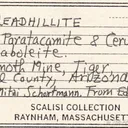 LEADHILLITE
Paratacamite & Cer
aboleite.
moth Mine, Tiger
l County, Arizona
Schortmann. From Ed
SCALISI COLLECTION
RAYNHAM, MASSACHUSET